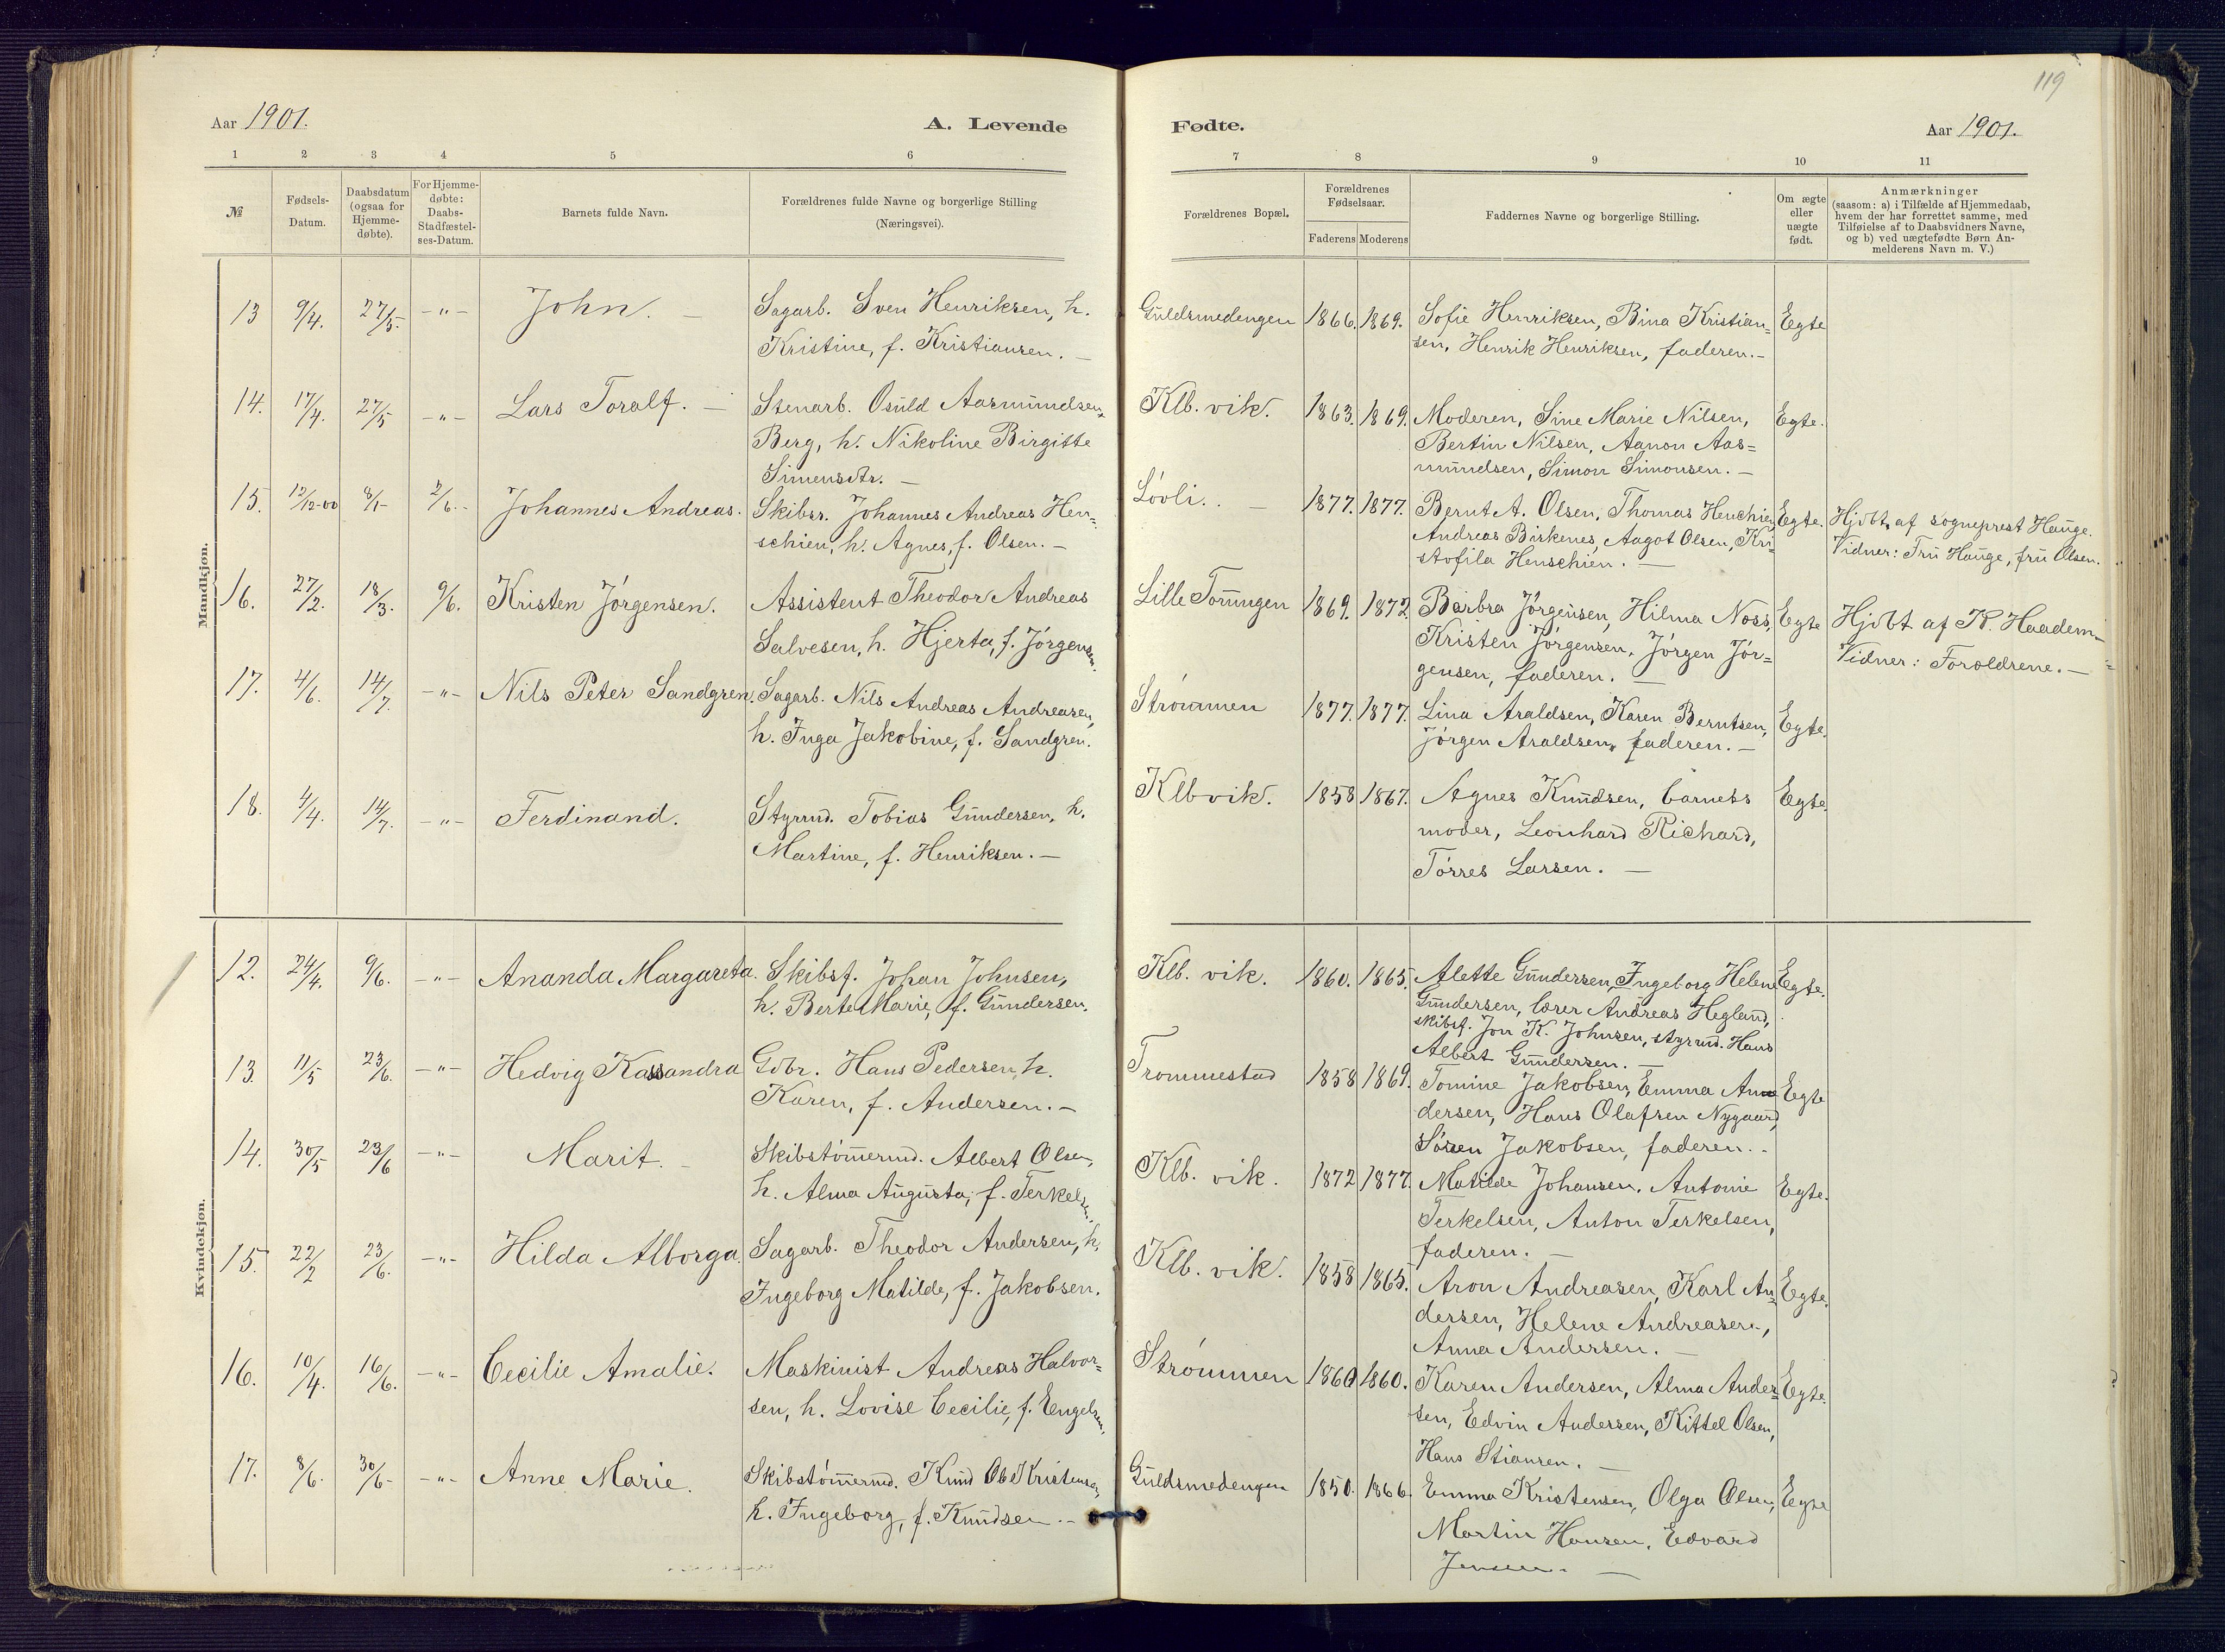 119
Aar 1901.
A. Levende Fødte.
Aar 1901.
1 2 3 4 5 6 7 8 9 10 11
№
Fødsels-
Datum.
Daabsdatum
(ogsaa for
Hjemme-
døbte).
For Hjemme-
døbte:
Daabs-
Stadfæstel-
ses-Datum.
Barnets fulde Navn.
Forældrenes fulde Navne og borgerlige Stilling
(Næringsvei).
Forældrenes Bopæl.
Forældrenes
Fødselsaar.
Faderens Moderens
Faddernes Navne og borgerlige Stilling.
Om ægte
eller
uægte
født.
Anmærkninger
(saasom: a) i Tilfælde af Hjemmedaab,
hvem der har forrettet samme, med
Tilføielse af to Daabsvidners Navne,
og b) ved uægtefødte Børn An-
melderens Navn m. V.)
Mandkjøn.
13 9/4. 27/5. -"- John. - Sagarb. Sven Henriksen, h.
Kristine, f. Kristiansen. -
Guldsmedengen 1866. 1869. Sofie Henriksen, Bina Kristian=
sen, Henrik Henriksen, faderen. -
Egte
14. 17/4. 27/5 -"- Lars Toralf. - Stenarb. Osuld Aasmundsen
Berg, h. Nikoline Birgitte
Simensdtr. -
Klb. vik. 1863. 1869. Moderen, Sine Marie Nilsen,
Bertin Nilsen, Aanon Aas=
mundsen, Simon Simonsen. -
Egte.
15. 12/12-00 8/1- 2/6.- Johannes Andreas. Skibsr. Johannes Andreas Hen=
schien, h. Agnes, f. Olsen. -
Lövli. - 1877. 1877. Bernt A. Olsen, Thomas Henchien,
Andreas Birkenes, Aagot Olsen, Kri=
stofila Henschien. -
Egte. Hjdbt. af sogneprest Hauge.
Vidner: Fru Hauge, fru Olsen.
16. 27/2. 18/3. 9/6. Kristen Jörgensen. Assistent Theodor Andreas
Salvesen, h. Hjerta, f. Jörgensen.
Lille Torungen 1869. 1872. Barbra Jörgensen, Hilma Noss,
Kristen Jörgensen, Jörgen Jör=
gensen, faderen. -
Egte Hjdbt. af K. Haadem-
Vidner: Foroldrene. -
17. 4/6. 14/7. -"- Nils Peter Sandgren. Sagarb. Nils Andreas Andreasen,
h. Inga Jakobine, f. Sandgren.
Strömmen 1877. 1877. Lina Araldsen, Karen Berntsen,
Jörgen Araldsen, faderen. -
Egte.
18. 4/4. 14/7. -"- Ferdinand. Styrmd. Tobias Gundersen, h.
Martine, f. Henriksen. -
Klbvik. 1858 1867. Agnes Knudsen, barnets
moder, Leonhard Richard,
Törres Larsen. -
Egte.
Kvindekjøn.
12. 24/4. 9/6. -"- Ananda Margareta. Skibsf. Johan Johnsen,
h. Berte Marie, f. Gundersen.
Klb. vik. 1860. 1865. Alette Gundersen, Ingeborg Helene
Gundersen, lærer Andreas Hegland,
skibsf. Jon K. Johnsen, styrmd. Hans
Albert Gundersen. -
Egte.
13. 11/5 23/6. -"- Hedvig Kassandra Gdbr. Hans Pedersen, h.
Karen, f. Andersen. -
Trommestad 1858 1869. Tomine Jakobsen, Emma An=
dersen, Hans Olafsen Nygaard,
Sören Jakobsen, faderen. -
Egte
14. 30/5 23/6 -"- Marit. - Skibstömermd. Albert Olsen,
h. Alma Augusta, f. Terkelsen.
Klb. vik. 1872 1877. Matilde Johansen, Antonie
Terkelsen, Anton Terkelsen,
faderen. -
Egte.
15. 22/2 23/6. -"- Hilda Alborga. Sagarb. Theodor Andersen, h.
Ingeborg Matilde, f. Jakobsen.
Klb. vik. 1858 1865. Aron Andreasen, Karl An=
dersen, Helene Andreasen,
Anna Andersen. -
Egte.
16. 10/4. 16/6. -"- Cecilie Amalie. Maskinist Andreas Halvor=
sen, h. Lovise Cecilie, f. Engelsen.
Strömmen 1860 1860. Karen Andersen, Alma Ander=
sen, Edvin Andersen, Kittel Olsen,
Hans Stiansen. -
Egte.
17. 8/6. 30/6- -"- Anne Marie. Skibstömermd. Knud Ole Kristensen,
h. Ingeborg, f. Knudsen. -
Guldsmedengen 1850. 1866. Emma Kristensen, Olga Olsen,
Martin Hansen, Edvard
Jensen. -
Egte